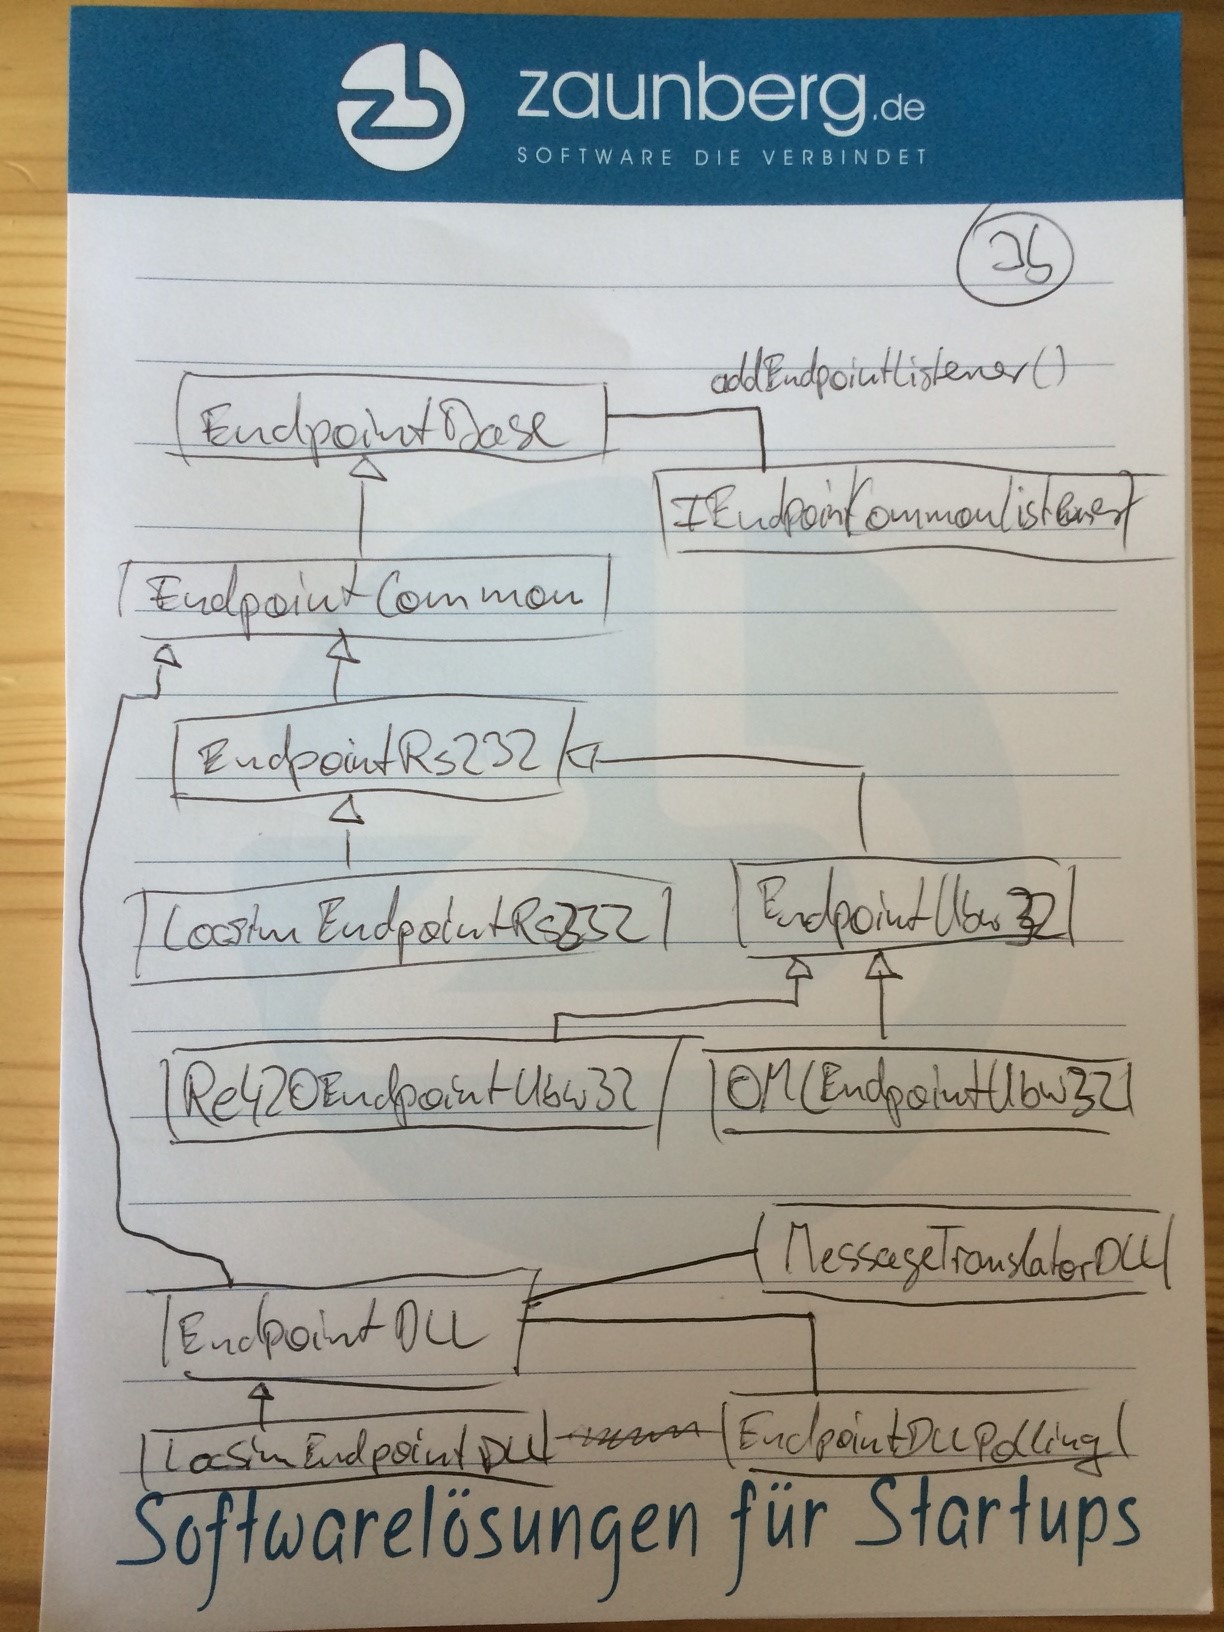 zaunberg.de
SOFTWARE DIE VERBINDET
addEndpointListener()
EndpointBase
IEndpointCommonListener
EndpointCommon
EndpointRs232
LocsimEndpointRs232
EndpointUbw32
Re420EndpointUbw32
OMLEndpointUbw32
MessageTranslatorDLL
EndpointDLL
LocSimEndpointDLL
EndpointDLLPolling
Softwarelösungen für Startups